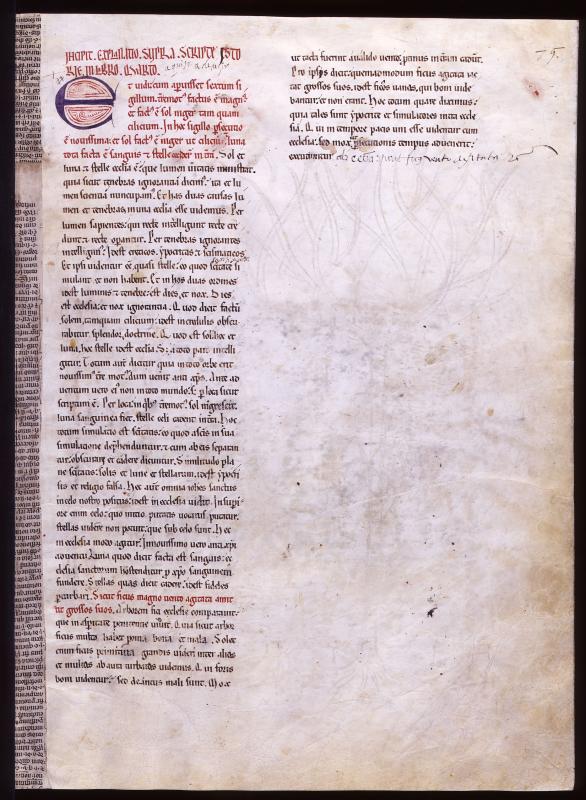 INCIPIT. EXPLANATIO. SUPRA. SCRIPTE ISTO
RIE. IN LIBRO. QUARTO.
Et vidi cum apuisset sextum si
gillum. t̄remot᷒ factus ē magn᷒
et fact᷒ ē sol niger tam quam
cilicium. In hoc sigillo p̄secutio
ē nouissima: et sol fac᷒ ē niger ut ciliciū. luna
tota facta ē sanguis et stelle in t̄ra. Sol et
luna et stelle ecclia ē. que lumen ueritatis ministrat.
quia sicut tenebras ignorantia dicim᷒. ita et lu
men scientia nuncupam᷒. Et has duas causas lu
men et tenebras. in una ecclia esse uidemus. Per
lumen sapientes: qui recte intelligunt recte cre
dunt et recte opantur. Per tenebras ignorantes
intelligim᷒. Id est ereticos. ypocritas et scismaticos.
Et ipsi uidentur et quasi stelle: eo quod sc̄itate si
mulant et non habent. Et in hos duas ordines
id est luminis et tenebre. est dies et nox. Dies
est ecclesia: et nox ignorantia. Quod dicit factū
solem. tamquam cilicium: id est in credulis obscu
rabitur splendor doctrine. Quod est sol hoc et
luna. hoc stelle id est ecclia. S; a toto pars intelli
gitur. Totum aut̄ dicitur quia in toto orbe erit
nouissim᷒ t̄re mot᷒. dum uenit̄ anti xp̄s. Ante ad
uentum uero ei᷒ non in toto mundo. S; p̄ loca sicut
scriptum ē. Per loca. in qb᷒ t̄remot᷒. sol nigrescit.
luna sanguinea fiet. stelle celi cadent in t̄ra. Hoc
totum simulatio est sc̄itatis: eo quod ascis in sua
simulatione dep̄henduntur. et cum ab eis separan
tur. obscurari et cadere dicuntur. Similitudo pla
ne sc̄itatis: solis et lune et stellarum. id est ypocri
sis et religio falsa. Hoc aut̄ omnia iohes sanctus
in celo nostro positus: id est in ecclesia uidit. In supi
ore enim celo: quo initio putatis uocatus putatur.
stellas uidere non potuit: que sub celo sunt. Hec
in ecclesia modo agitur. In nouissimo uero anti xp̄i
aduentu. Luna quod dicit facta est sanguis: ec
clesia sanctorum hostenditur p̄ xp̄o sanguinem
fundere. Stellas quas dicit cadere. id est fideles
pturbari. Sicut ficus magno uento agitata amit
tit grossos suos. Arborem fici ecclesie comparauit.
que in aspitate penitentie uiuit. Quia sicut arbor
ficus multa habet poma bona et mala. Solet
enim ficus primitiua grandis uideri inter alias
et multos ab aura turbatos uidemus. Qui foris
boni uidentur: sed de intus mali sunt. Mox
ut tacta fuerint a ualido uento: panius in t̄ram cadūt.
Pro ipsis dicit: quemadmodum ficus agitata uē
tat grossos suos. id est foris uanos. qui boni uide
bantur. et non erant. Hoc totum quare diximus:
quia tales sunt ypocrite et simulatores in ista eccle
sia. Qui in tempore pacis uni esse uidentur cum
ecclesia. sed mox p̄secutionis tempus aduenerit:
excutiuntur
75.